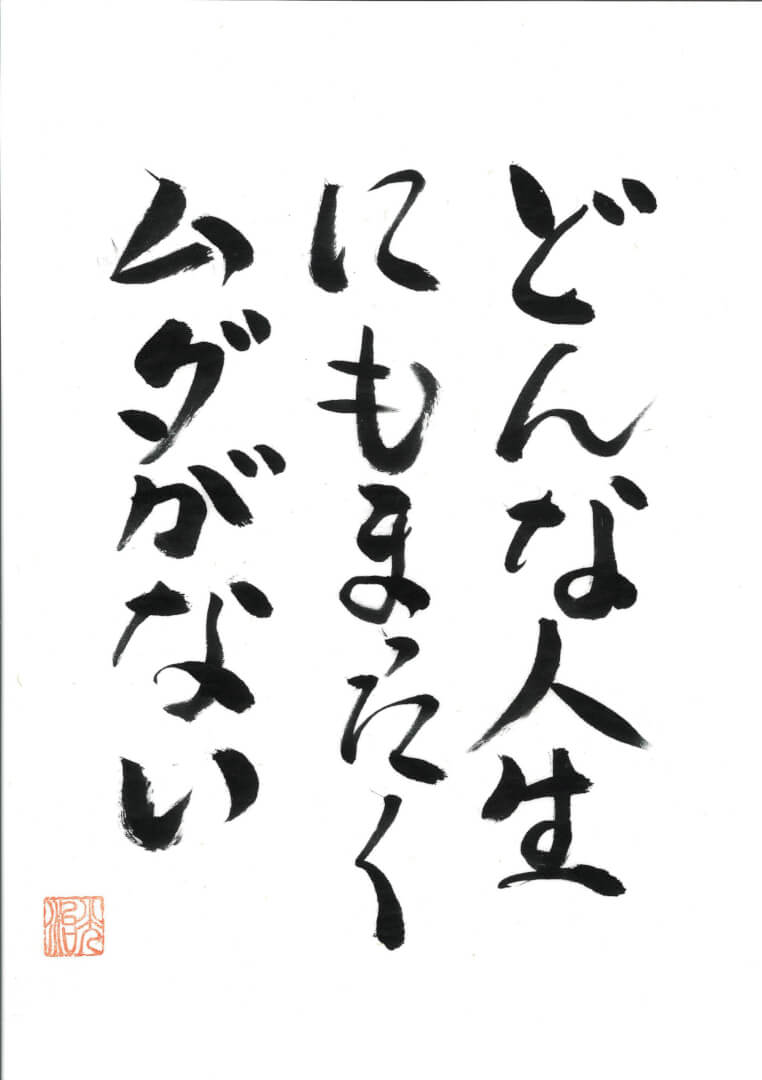 どんな人生
にもまったく
ムダがない